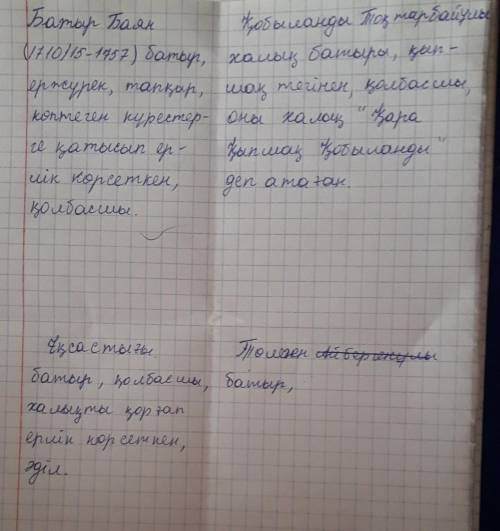 Батыр Баян
(1710/15-1757) батыр,
ержүрек, тапқыр,
көптеген күрестер-
ге қатысып ер-
лік көрсеткен,
қолбасшы.
Қобыланды Тоқтарбайұлы
халық батыры, қып-
шақ тегінен, қолбасшы,
оны халық "Қара
Қыпшақ Қобыланды"
деп атаған.
Ұқсастығы
батыр, қолбасшы,
халықты қорғап
ерлік көрсеткен,
әділ.
Төлеген
батыр,